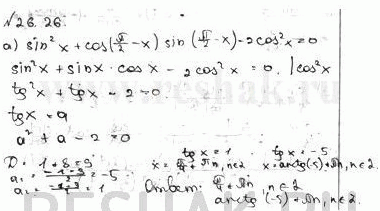 №26.26.
а) sin²x + cos(π/2 - x) sin(π/2 - x) - 2cos²x = 0
sin²x + sinx · cosx - 2cos²x = 0. |cos²x
tg²x + tgx - 2 = 0
tgx = a
a² + a - 2 = 0
D = 1 + 8 = 9
a₁ = (-1-9)/2 = -5
a₁ = (-1+3)/2 = 1
tgx = 1
x = π/4 + πn, n∈Z
tgx = -5
x = arctg(-5) + πn, n∈Z.
Ответ: π/4 + πn, n∈Z
arctg(-5) + πn, n∈Z.